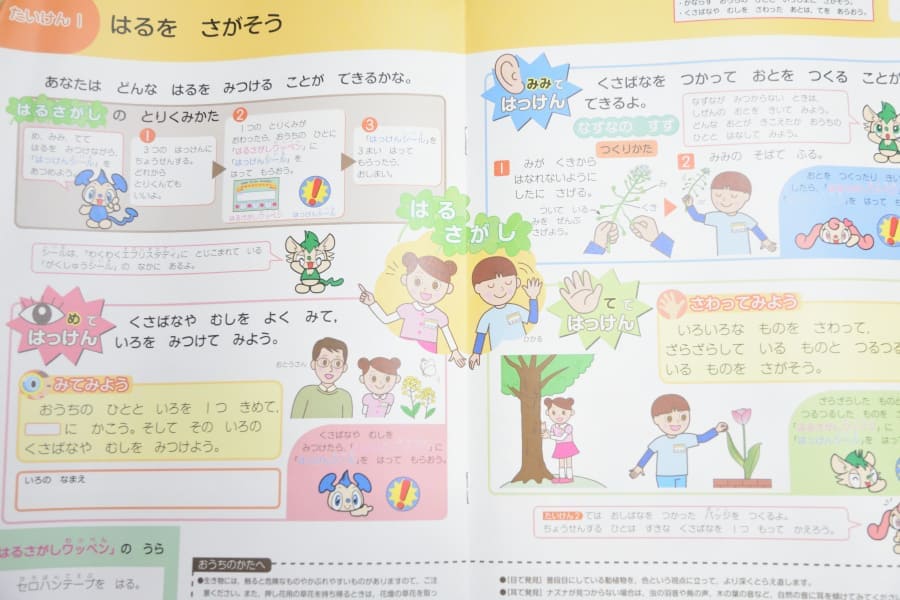 たいけん1
はるを さがそう
・くさばなや むしを さわった あとは、てを あらおう。
あなたは どんな はるを みつける ことが できるかな。
はるさがし の とりくみかた
め、みみ、てで
はるを みつけながら、
「はっけんシール」を
あつめよう。
1
3つの はっけんに
ちょうせんする。
どれから
とりくんでも
いいよ。
2
1つの とりくみが
おわったら、おうちの ひとに
「はるさがしワッペン」に
「はっけんシール」を
はって もらおう。
はるさがしワッペン はっけんシール
3
「はっけんシール」を
3まい はって
もらったら、
おしまい。
シールは、「わくわくエブリスタディ」に とじこまれて いる
「がくしゅうシール」の なかに あるよ。
はる
さがし
ひかる
めで
はっけん
くさばなや むしを よく みて、
いろを みつけて みよう。
おとうさん
みてみよう
おうちの ひとと いろを 1つ きめて、
に かこう。そして その いろの
くさばなや むしを みつけよう。
いろの なまえ
くさばなや むしを
みつけたら、「
「はっけんシール」を はって もらおう。
はるさがしワッペン」の うら
セロハンテープを はる。
みみで
はっけん
くさばなを つかって おとを つくる ことが
できるよ。
なずなの すず
つくりかた
なずなが みつからない ときは、
しぜんの おとを きいて みよう。
どんな おとが きこえたか おうちの
ひとと はなして みよう。
1 みが くきから
はなれないように
したに さげる。
ついて いる
みを ぜんぶ
さげよう。
み
くき
2 みみの そばで ふる。
おとを つくったり きい
したら、
を はって も
てで
はっけん
さわってみよう
いろいろな ものを さわって、
ざらざらして いる ものと つるつる
いる ものを さがそう。
ざらざらした もの
つるつるした ものを さ
「はるさがしワッペン」に
「はっけんシール」を
たいけん2 では おしばなを つかった バッジを つくるよ。
ちょうせんする ひとは すきな くさばなを 1つ もって かえろう。
おうちのかたへ
●生き物には、触ると危険なものやかぶれやすいものがありますので、ご注
意ください。また、押し花用の草花を持ち帰るときは、花壇の草花を取っ
●【目で発見】普段目にしている動植物を、色という視点に立って、より深くとらえ直します。
●【耳で発見】ナズナが見つからない場合は、虫の羽音や鳥の声、木の葉の音など、自然の音に耳を傾けてみてください